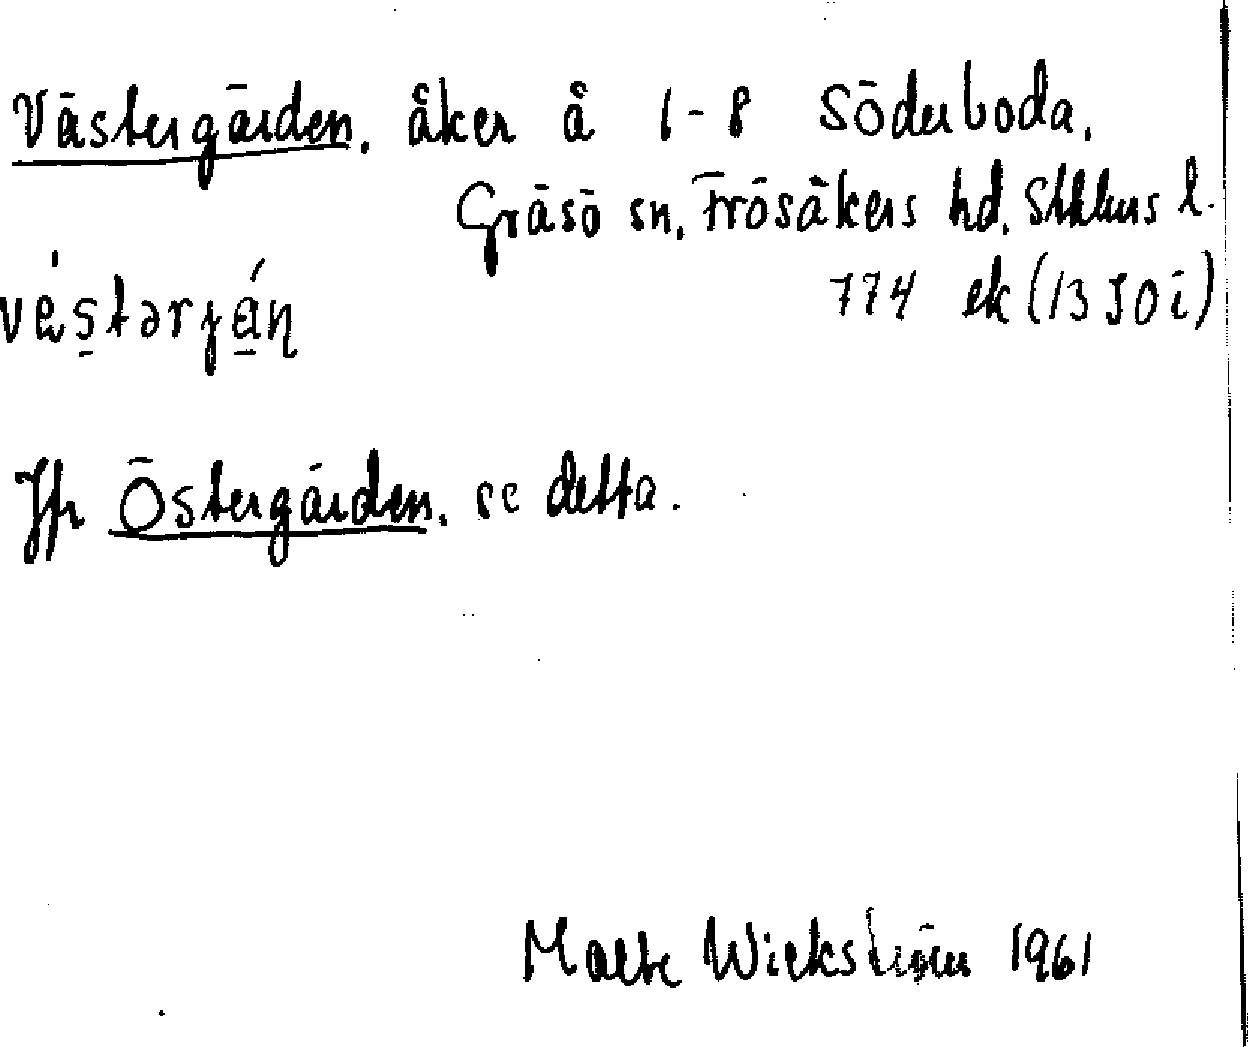 Västergärden. åker å 1-8 Söderboda.
Gräsö sn, Frösåkers hd. Sthlms l.
774 ek (1350 i)
Jfr Östergärden. se detta.
Malte Wickström 1961